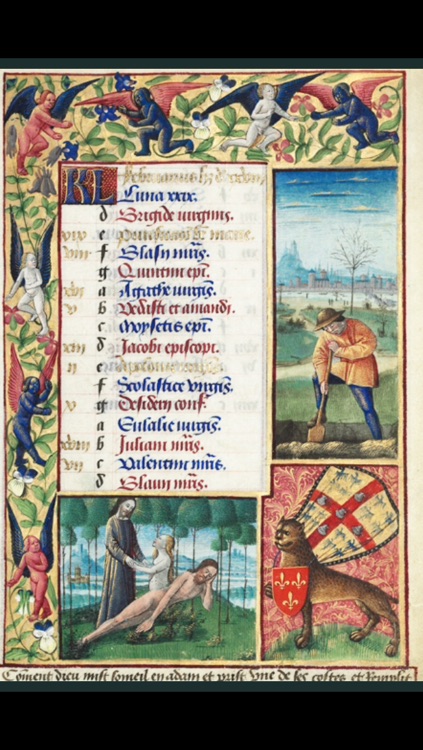 KL
Luna xxix.
d Brigide virginis.
e
viii f Blasii mris.
g Quintini epi.
a Agathe virgis.
v b Vedasti et amandi.
c Moysetis epi.
xiii d Jacobi episcopi.
e
f Scolastice virgis.
x g Desiderii conf.
a Eulalie virgis.
xviii b Juliani mris.
vii c Valentini mris.
d Blavii mris.
Coment dieu mist someil en adam et prist vne de ses costes et remplit